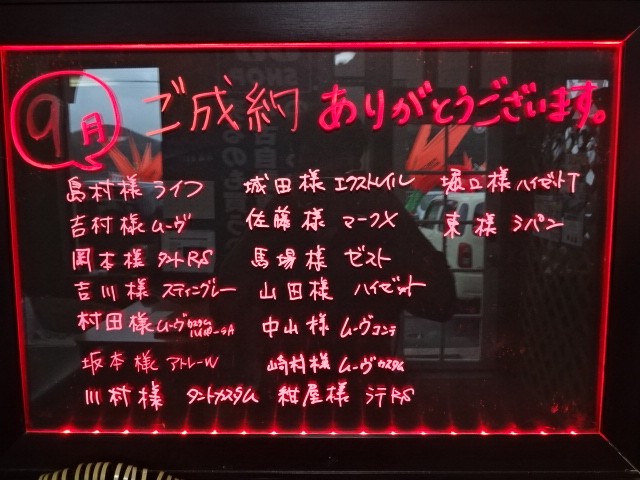 9月 ご成約 ありがとうございます。
島村様 ライフ
吉村様 ムーヴ
岡本様 タントRS
吉川様 スティングレー
村田様 ムーヴカスタム
坂本様 アトレーW
川村様 タントカスタム
城田様 エクストレイル
佐藤様 マークX
馬場様 ゼスト
山田様 ハイゼット
中山様 ムーヴコンテ
崎村様 ムーヴカスタム
紺屋様 ラテRS
堀口様 ハイゼットT
東様 ラパン